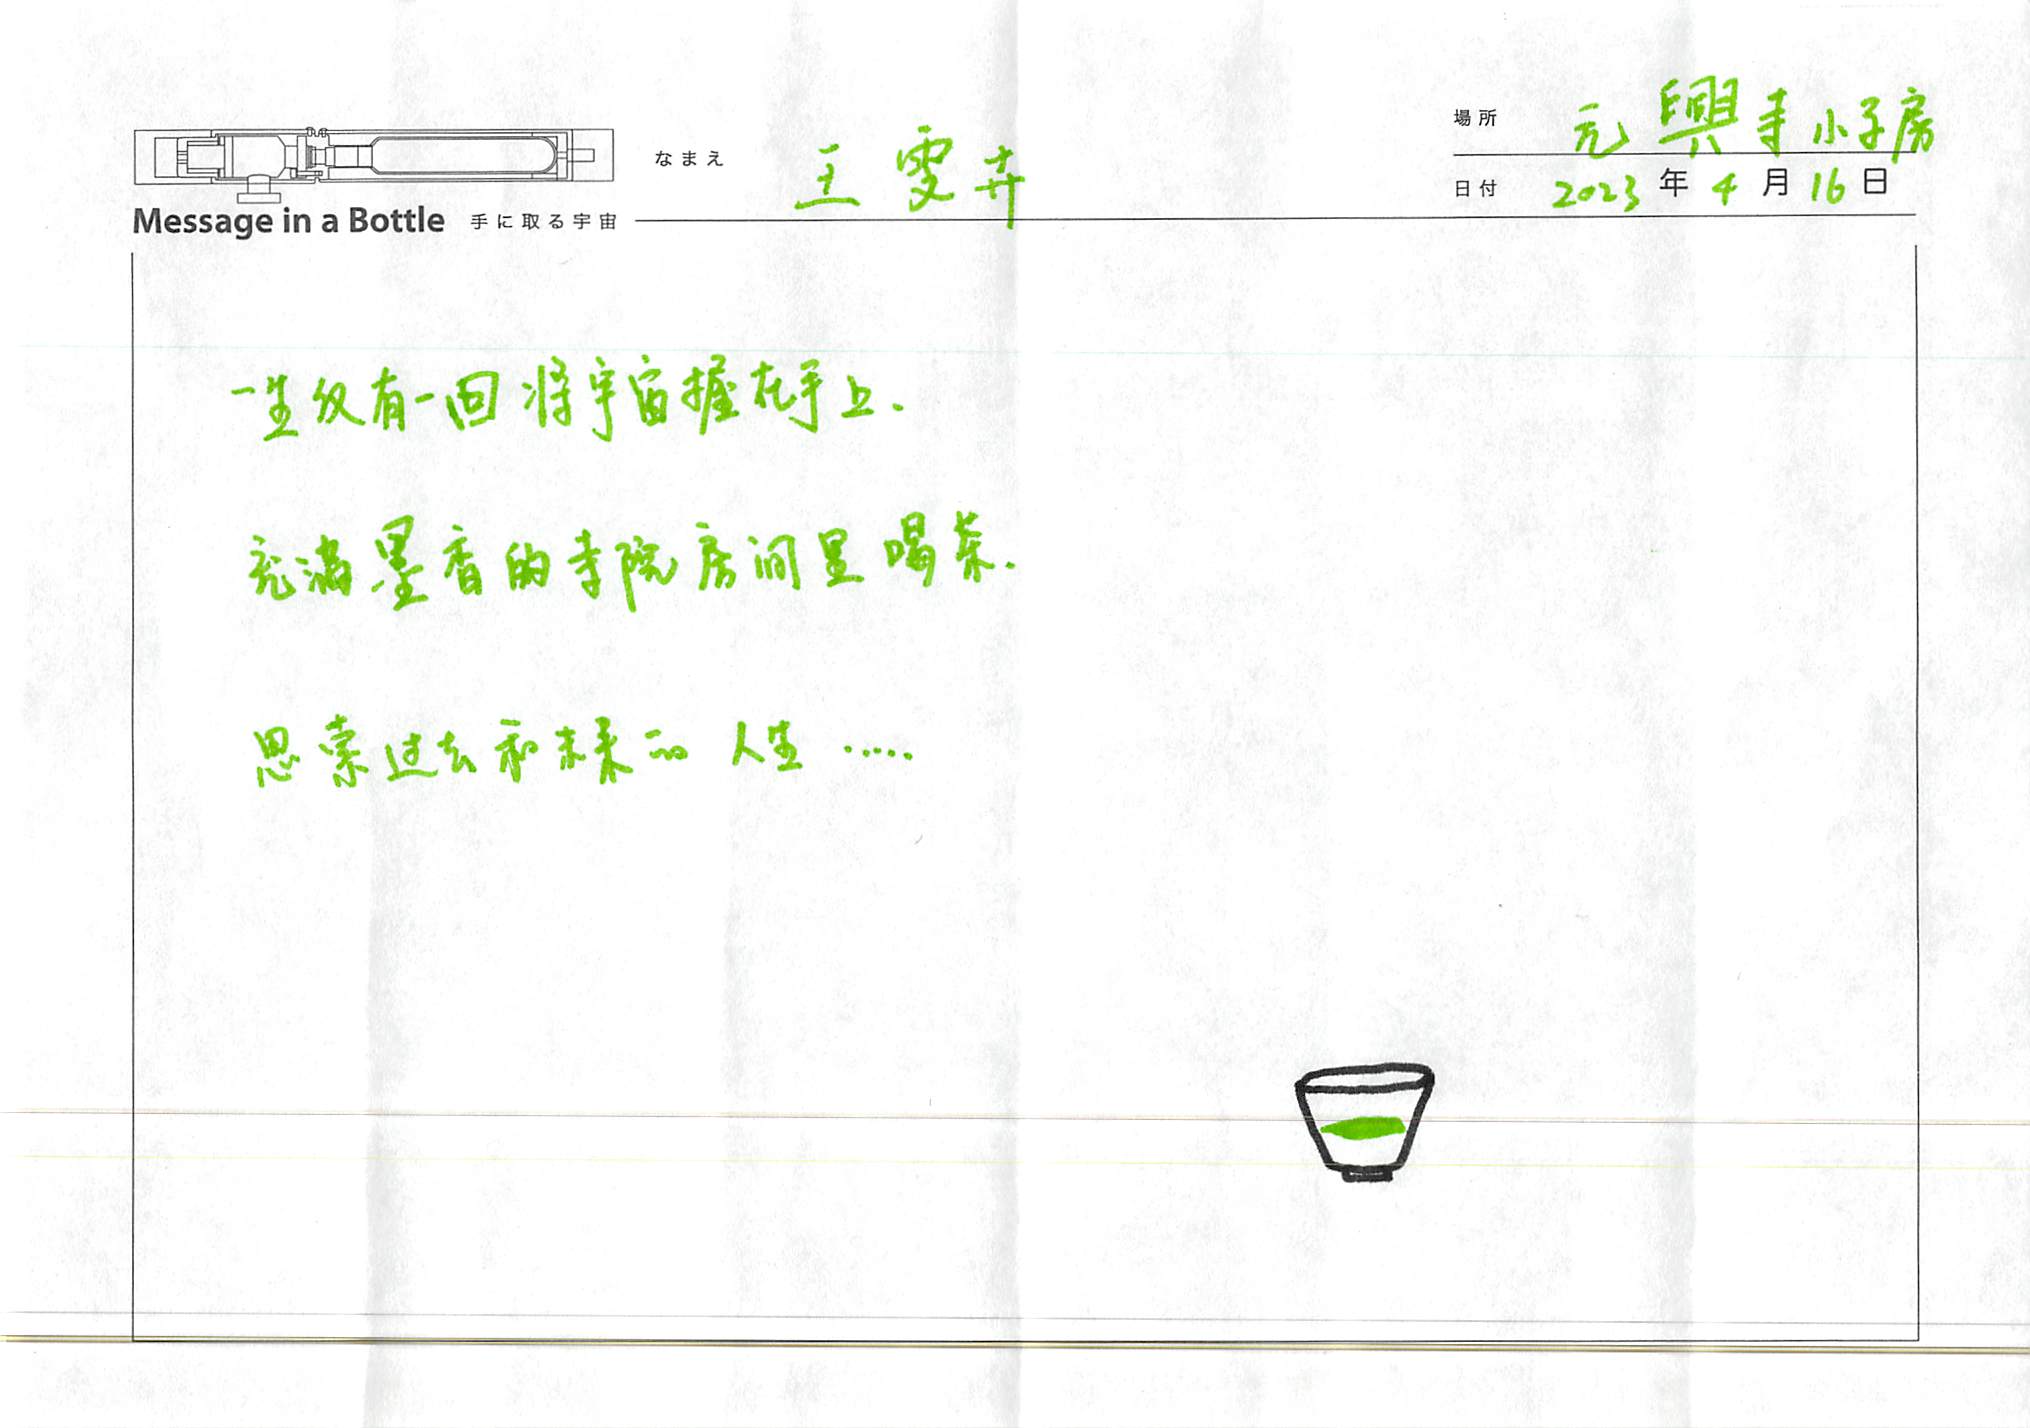 場所 元興寺小子房
なまえ 王雯卉
日付 2023年4月16日
Message in a Bottle 手に取る宇宙
一生仅有一回将宇宙握在手上.
充满墨香的寺院房间里喝茶.
思索过去和未来的人生……